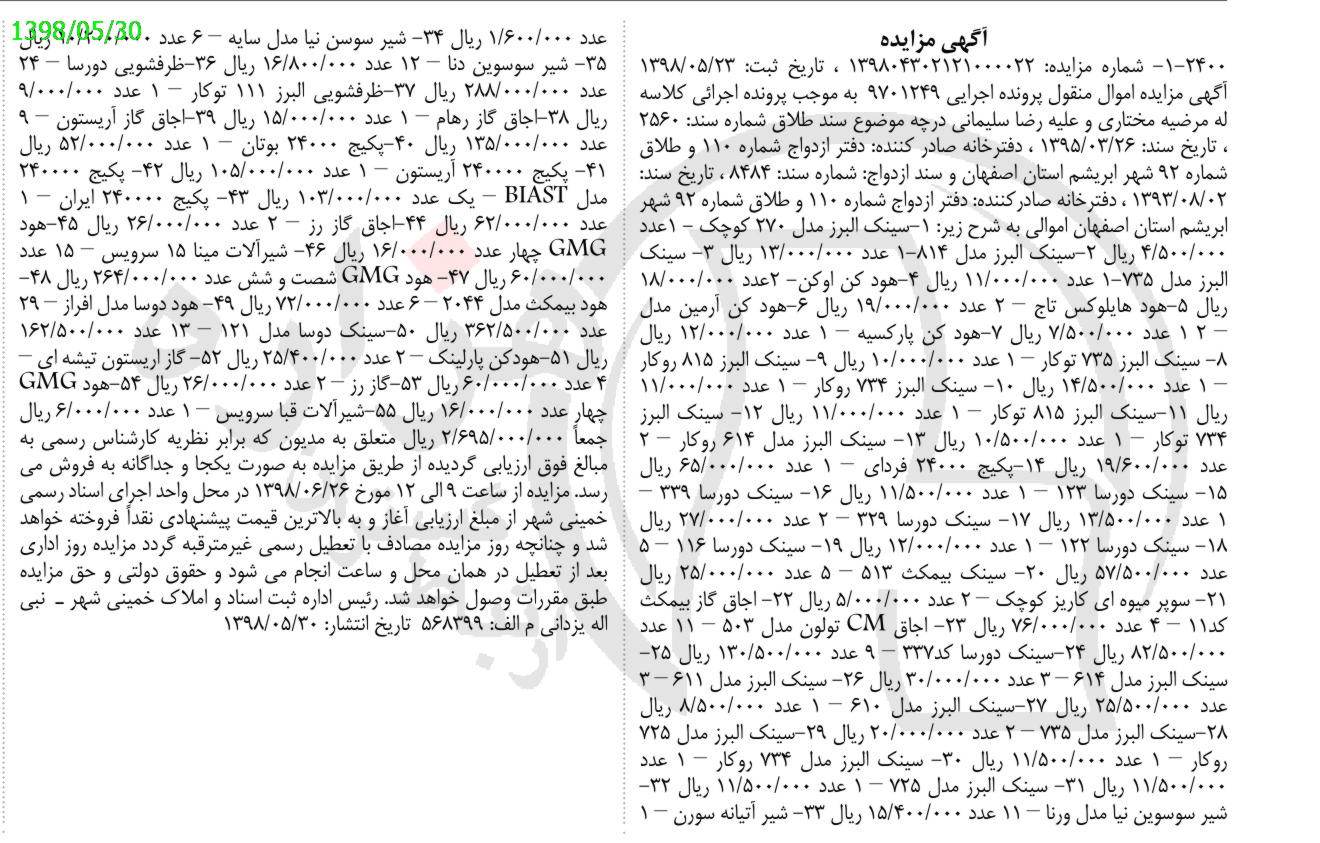 آگهی مزایده
۲۴۰۰-۱- شماره مزایده: ۱۳۹۸۰۴۳۰۲۱۲۱۰۰۰۰۲۲ ، تاریخ ثبت: ۱۳۹۸/۰۵/۲۳
آگهی مزایده اموال منقول پرونده اجرایی ۹۷۰۱۲۴۹ به موجب پرونده اجرائی کلاسه
له مرضیه مختاری و علیه رضا سلیمانی درچه موضوع سند طلاق شماره سند: ۲۵۶۰
، تاریخ سند: ۱۳۹۵/۰۳/۲۶ ، دفترخانه صادر کننده: دفتر ازدواج شماره ۱۱۰ و طلاق
شماره ۹۲ شهر ابریشم استان اصفهان و سند ازدواج: شماره سند: ۸۴۸۴ ، تاریخ سند:
۱۳۹۳/۰۸/۰۲ ، دفترخانه صادرکننده: دفتر ازدواج شماره ۱۱۰ و طلاق شماره ۹۲ شهر
ابریشم استان اصفهان اموالی به شرح زیر: ۱-سینک البرز مدل ۲۷۰ کوچک - ۱عدد
۴/۵۰۰/۰۰۰ ریال ۲-سینک البرز مدل ۸۱۴-۱ عدد ۱۳/۰۰۰/۰۰۰ ریال ۳- سینک
البرز مدل ۷۳۵-۱ عدد ۱۱/۰۰۰/۰۰۰ ریال ۴-هود کن اوکن- ۲عدد ۱۸/۰۰۰/۰۰۰
ریال ۵-هود هایلوکس تاج – ۲ عدد ۱۹/۰۰۰/۰۰۰ ریال ۶-هود کن آرمین مدل
– ۲ ۱ عدد ۷/۵۰۰/۰۰۰ ریال ۷-هود کن پارکسیه – ۱ عدد ۱۲/۰۰۰/۰۰۰ ریال
۸- سینک البرز ۷۳۵ توکار – ۱ عدد ۱۰/۰۰۰/۰۰۰ ریال ۹- سینک البرز ۸۱۵ روکار
– ۱ عدد ۱۴/۵۰۰/۰۰۰ ریال ۱۰- سینک البرز ۷۳۴ روکار – ۱ عدد ۱۱/۰۰۰/۰۰۰
ریال ۱۱-سینک البرز ۸۱۵ توکار – ۱ عدد ۱۱/۰۰۰/۰۰۰ ریال ۱۲- سینک البرز
۷۳۴ توکار – ۱ عدد ۱۰/۵۰۰/۰۰۰ ریال ۱۳- سینک البرز مدل ۶۱۴ روکار – ۲
عدد ۱۹/۶۰۰/۰۰۰ ریال ۱۴-پکیج ۲۴۰۰۰ فردای – ۱ عدد ۶۵/۰۰۰/۰۰۰ ریال
۱۵- سینک دورسا ۱۲۳ – ۱ عدد ۱۱/۵۰۰/۰۰۰ ریال ۱۶- سینک دورسا ۳۳۹ –
۱ عدد ۱۳/۵۰۰/۰۰۰ ریال ۱۷- سینک دورسا ۳۲۹ – ۲ عدد ۲۷/۰۰۰/۰۰۰ ریال
۱۸- سینک دورسا ۱۲۲ – ۱ عدد ۱۲/۰۰۰/۰۰۰ ریال ۱۹- سینک دورسا ۱۱۶ – ۵
عدد ۵۷/۵۰۰/۰۰۰ ریال ۲۰- سینک بیمکث ۵۱۳ – ۵ عدد ۲۵/۰۰۰/۰۰۰ ریال
۲۱- سوپر میوه ای کاریز کوچک – ۲ عدد ۵/۰۰۰/۰۰۰ ریال ۲۲- اجاق گاز بیمکث
کد۱۱ – ۴ عدد ۷۶/۰۰۰/۰۰۰ ریال ۲۳- اجاق CM تولون مدل ۵۰۳ – ۱۱ عدد
۸۲/۵۰۰/۰۰۰ ریال ۲۴-سینک دورسا کد۳۳۷ – ۹ عدد ۱۳۰/۵۰۰/۰۰۰ ریال ۲۵-
سینک البرز مدل ۶۱۴ – ۳ عدد ۳۰/۰۰۰/۰۰۰ ریال ۲۶- سینک البرز مدل ۶۱۱ – ۳
عدد ۲۵/۵۰۰/۰۰۰ ریال ۲۷-سینک البرز مدل ۶۱۰ – ۱ عدد ۸/۵۰۰/۰۰۰ ریال
۲۸-سینک البرز مدل ۷۳۵ – ۲ عدد ۲۰/۰۰۰/۰۰۰ ریال ۲۹-سینک البرز مدل ۷۲۵
روکار – ۱ عدد ۱۱/۵۰۰/۰۰۰ ریال ۳۰- سینک البرز مدل ۷۳۴ روکار – ۱ عدد
۱۱/۵۰۰/۰۰۰ ریال ۳۱- سینک البرز مدل ۷۲۵ – ۱ عدد ۱۱/۵۰۰/۰۰۰ ریال ۳۲-
شیر سوسوین نیا مدل ورنا – ۱۱ عدد ۱۵/۴۰۰/۰۰۰ ریال ۳۳- شیر آتیانه سورن – ۱
1398/05/30
عدد ۱/۶۰۰/۰۰۰ ریال ۳۴- شیر سوسن نیا مدل سایه – ۶ عدد ریال
۳۵- شیر سوسوین دنا – ۱۲ عدد ۱۶/۸۰۰/۰۰۰ ریال ۳۶-ظرفشویی دورسا – ۲۴
عدد ۲۸۸/۰۰۰/۰۰۰ ریال ۳۷-ظرفشویی البرز ۱۱۱ توکار – ۱ عدد ۹/۰۰۰/۰۰۰
ریال ۳۸-اجاق گاز رهام – ۱ عدد ۱۵/۰۰۰/۰۰۰ ریال ۳۹-اجاق گاز آریستون – ۹
عدد ۱۳۵/۰۰۰/۰۰۰ ریال ۴۰-پکیج ۲۴۰۰۰ بوتان – ۱ عدد ۵۲/۰۰۰/۰۰۰ ریال
۴۱- پکیج ۲۴۰۰۰۰ آریستون – ۱ عدد ۱۰۵/۰۰۰/۰۰۰ ریال ۴۲- پکیج ۲۴۰۰۰۰
مدل BIAST – یک عدد ۱۰۳/۰۰۰/۰۰۰ ریال ۴۳- پکیج ۲۴۰۰۰۰ ایران – ۱
عدد ۶۲/۰۰۰/۰۰۰ ریال ۴۴-اجاق گاز رز – ۲ عدد ۲۶/۰۰۰/۰۰۰ ریال ۴۵-هود
GMG چهار عدد ۱۶/۰۰۰/۰۰۰ ریال ۴۶- شیرآلات مینا ۱۵ سرویس – ۱۵ عدد
۶۰/۰۰۰/۰۰۰ ریال ۴۷- هود GMG شصت و شش عدد ۲۶۴/۰۰۰/۰۰۰ ریال ۴۸-
هود بیمکث مدل ۲۰۴۴ – ۶ عدد ۷۲/۰۰۰/۰۰۰ ریال ۴۹- هود دوسا مدل افراز – ۲۹
عدد ۳۶۲/۵۰۰/۰۰۰ ریال ۵۰-سینک دوسا مدل ۱۲۱ – ۱۳ عدد ۱۶۲/۵۰۰/۰۰۰
ریال ۵۱-هودکن پارلینک – ۲ عدد ۲۵/۴۰۰/۰۰۰ ریال ۵۲- گاز اریستون تیشه ای –
۴ عدد ۶۰/۰۰۰/۰۰۰ ریال ۵۳-گاز رز – ۲ عدد ۲۶/۰۰۰/۰۰۰ ریال ۵۴-هود GMG
چهار عدد ۱۶/۰۰۰/۰۰۰ ریال ۵۵-شیرآلات قبا سرویس – ۱ عدد ۶/۰۰۰/۰۰۰ ریال
جمعاً ۲/۶۹۵/۰۰۰/۰۰۰ ریال متعلق به مدیون که برابر نظریه کارشناس رسمی به
مبالغ فوق ارزیابی گردیده از طریق مزایده به صورت یکجا و جداگانه به فروش می
رسد. مزایده از ساعت ۹ الی ۱۲ مورخ ۱۳۹۸/۰۶/۲۶ در محل واحد اجرای اسناد رسمی
خمینی شهر از مبلغ ارزیابی آغاز و به بالاترین قیمت پیشنهادی نقداً فروخته خواهد
شد و چنانچه روز مزایده مصادف با تعطیل رسمی غیرمترقبه گردد مزایده روز اداری
بعد از تعطیل در همان محل و ساعت انجام می شود و حقوق دولتی و حق مزایده
طبق مقررات وصول خواهد شد. رئیس اداره ثبت اسناد و املاک خمینی شهر ـ نبی
اله یزدانی م الف: ۵۶۸۳۹۹ تاریخ انتشار: ۱۳۹۸/۰۵/۳۰